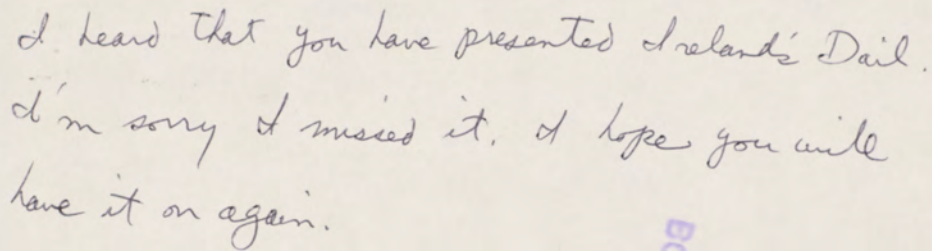 I heard that you have presented Ireland's Dail.
I'm sorry I missed it. I hope you will
have it on again.